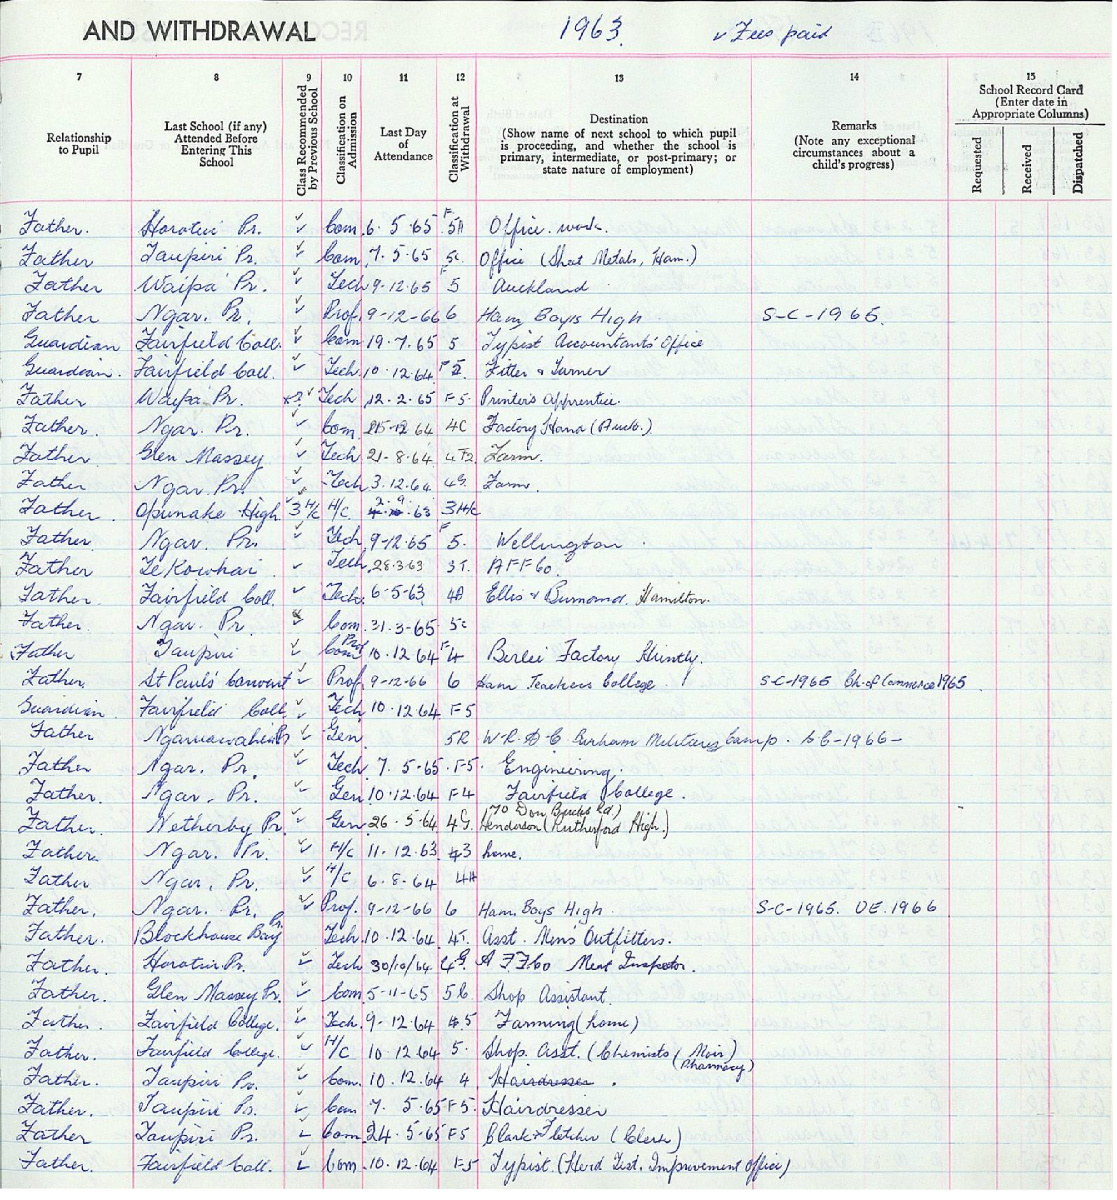 AND WITHDRAWAL 1963. v Fees paid
7 8 9 10 11 12 13 14 15
Relationship to Pupil
Last School (if any) Attended Before Entering This School
Class Recommended by Previous School
Classification on Admission
Last Day of Attendance
Classification at Withdrawal
Destination (Show name of next school to which pupil is proceeding, and whether the school is primary, intermediate, or post-primary; or state nature of employment)
Remarks (Note any exceptional circumstances about a child's progress)
School Record Card (Enter date in Appropriate Columns)
Requested Received Dispatched
Father. Horotiu Pr. ✓ Com 6. 5. 65 F 5A Office work.
Father Taupiri Pr. ✓ Com 7. 5. 65 5c Office (Sheet Metals, Ham.)
Father Waipa Pr. ✓ Tech 9-12-65 F 5 Auckland
Father Ngar. Pr. ✓ Prof. 9-12-66 6 Ham Boys High S-C-1965.
Guardian Fairfield Coll. ✓ Com 19. 7. 65 5 Typist Accountants' Office
Guardian. Fairfield Coll. ✓ Tech. 10. 12. 64 F Fitter & Turner
Father Waipa Pr. ✓ Tech 12. 2. 65 F5. Printer's Apprentice.
Father. Ngar. Pr. ✓ Com 15-12 64 4C Factory Hand (Auck.)
Father Glen Massey ✓ Tech 21-8-64 4T2 Farm.
Father Ngar. Pr. ✓ Tech 3.12.64 4G. Farm.
Father. Opunake High ✓ 3 H/c H/C 2. 9. 63 3H/c
Father Ngar. Pr. ✓ Tech 9-12-65 F 5. Wellington.
Father Te Kowhai ✓ Tech 28.3.63 3T. AFFCo.
Father Fairfield Coll. ✓ Tech. 6-5-63 4A Ellis & Burnand. Hamilton.
Father. Ngar. Pr. Com. 31.3-65 5c
Father Taupiri ✓ Com Prof 10. 12 64 F 4 Berlei Factory Huntly.
Father. St Paul's Convent ✓ Prof 9-12-66 6 Ham Teachers College S-C-1965 Ch. of Commerce 1965
Guardian Fairfield Coll. ✓ Tech 10. 12 64 F5
Father Ngaruawahia Pr ✓ Gen 5R Burham Military Camp. 1966-
Father Ngar. Pr. ✓ Tech 7. 5-65 F5. Engineering.
Father Ngar. Pr. ✓ Gen 10.12.64 F4 Fairfield College.
Father. Netherby Pr. ✓ Gen 26. 5.64 4G. Henderson (Rutherford High.) (70 Don Buck's Rd)
Father. Ngar. Pr. ✓ H/C 11. 12.63 3 home.
Father Ngar. Pr. ✓ H/C 6. 8. 64 4H
Father. Ngar. Pr. ✓ Prof. 9-12-66 6 Ham. Boys High. S-C-1965. UE. 1966
Father. Blockhouse Bay Pr. Tech. 10. 12. 64 4T. Asst. Men's Outfitters.
Father. Horotiu Pr. ✓ Tech 30/10/64 4G. AFFCo Meat Inspector.
Father. Glen Massey Pr. ✓ Com 5-11-65 5C. Shop Assistant.
Father. Fairfield College. ✓ Tech. 9-12.64 5 Farming (home)
Father. Fairfield College. ✓ H/C 10. 12 64 5. Shop. Asst. (Chemists (Moir Pharmacy)
Father. Taupiri Pr. ✓ Com. 10. 12. 64 4 Hairdresser.
Father. Taupiri Pr. ✓ Com 7. 5.65 F5. Hairdresser
Father Taupiri Pr. ✓ Com 24. 5-65 F5 Clark & Fletcher (Clerk)
Father. Fairfield Coll. ✓ Com. 10. 12. 64 F5 Typist. (Herd Test. Improvement Office)